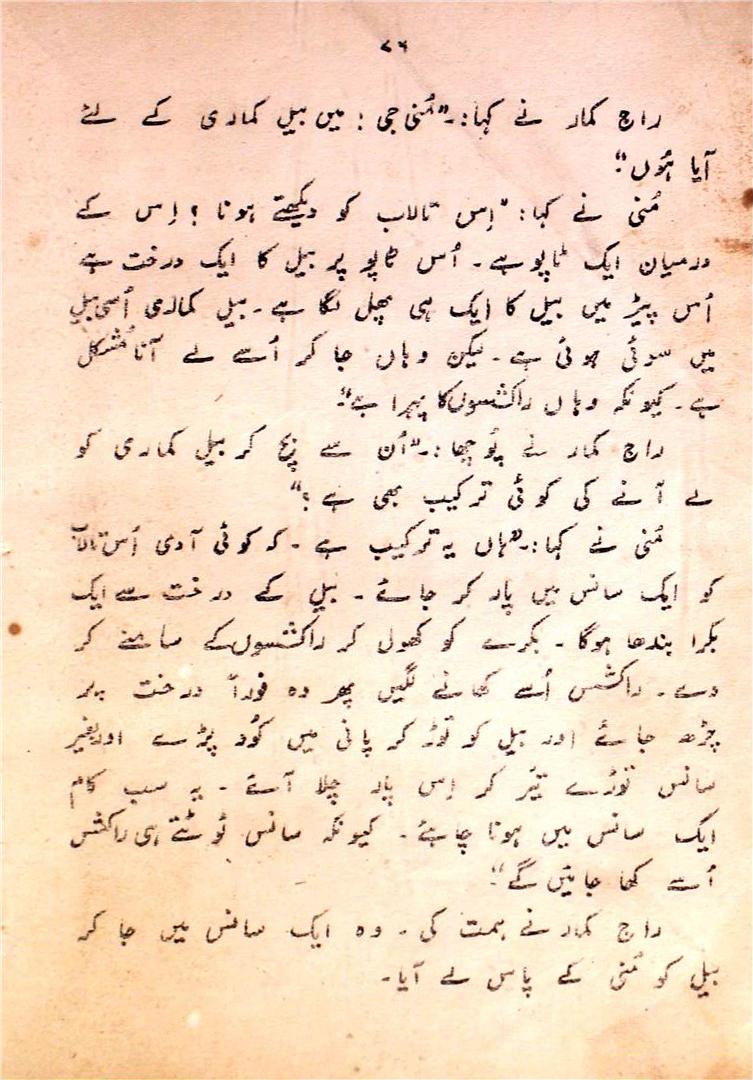 ۷۶
راج کمار نے کہا:۔ "مُنی جی! میں بیل کماری کے لئے
آیا ہُوں"
مُنی نے کہا: "اِس تالاب کو دیکھتے ہونا؟ اِس کے
درمیان ایک ٹاپو ہے۔ اُس ٹاپو پر بیل کا ایک درخت ہے
اُس پیڑ میں بیل کا ایک ہی پھل لگا ہے۔ بیل کماری اُسی بیل
میں سوئی ہوئی ہے۔ لیکن وہاں جا کر اُسے لے آنا مُشکل
ہے۔ کیونکہ وہاں راکشسوں کا پہرا ہے"۔
راج کمار نے پُوچھا:۔ "اُن سے بچ کر بیل کماری کو
لے آنے کی کوئی ترکیب بھی ہے؟"
مُنی نے کہا:۔ "ہاں یہ ترکیب ہے۔ کہ کوئی آدمی اُس تالاب
کو ایک سانس میں پار کر جائے۔ بیل کے درخت سے ایک
بکرا بندھا ہوگا۔ بکرے کو کھول کر راکشسوں کے سامنے کر
دے۔ راکشس اُسے کھانے لگیں پھر وہ فوراً درخت پر
چڑھ جائے اور بیل کو توڑ کر پانی میں کُود پڑے اور بغیر
سانس توڑے تیَر کر اِس پار چلا آئے۔ یہ سب کام
ایک سانس میں ہونا چاہئے۔ کیونکہ سانس ٹوٹتے ہی راکشس
اُسے کھا جائیں گے"۔
راج کمار نے ہمت کی۔ وہ ایک سانس میں جا کر
بیل کو مُنی کے پاس لے آیا۔